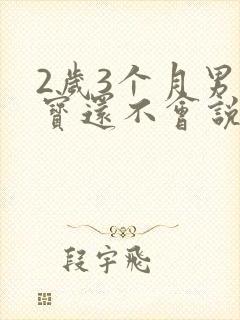 2歲3个月男
寶還不會説
段宇飛